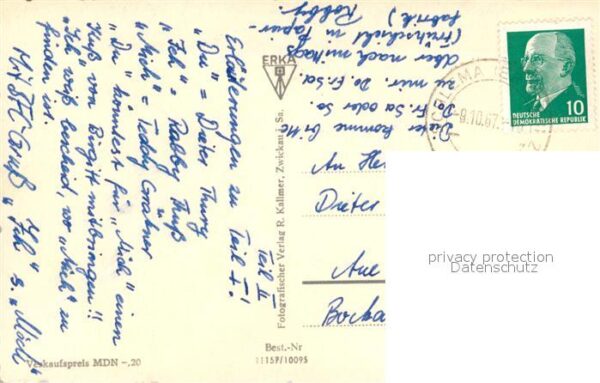 Teil II
Erläuterungen zu Teil I!
"Du" = Dieter Thurg
"Ich" = Robby Kuß
"Mich" = Teddy Grabner
"Du" könntest für "Mich" einen
Kuß von Birgitt mitbringen!!
"Ich" weiß bescheid, wo "Mich" zu
finden ist.
"Ich" u. "Mich"
Dieter komme bitte
Do. Fr. Sa oder So
zu mir. Do. Fr. Sa.
aber nachmittags
(Frühschicht in Papier-
fabrik) Robby
ERKA
Fotografischer Verlag R. Kallmer, Zwickau i. Sa.
DEUTSCHE
DEMOKRATISCHE REPUBLIK
10
-9.10.67
An
Dieter
Aue
Bocka
privacy protection
Datenschutz
Best.-Nr
11157/10095
Verkaufspreis MDN -,20